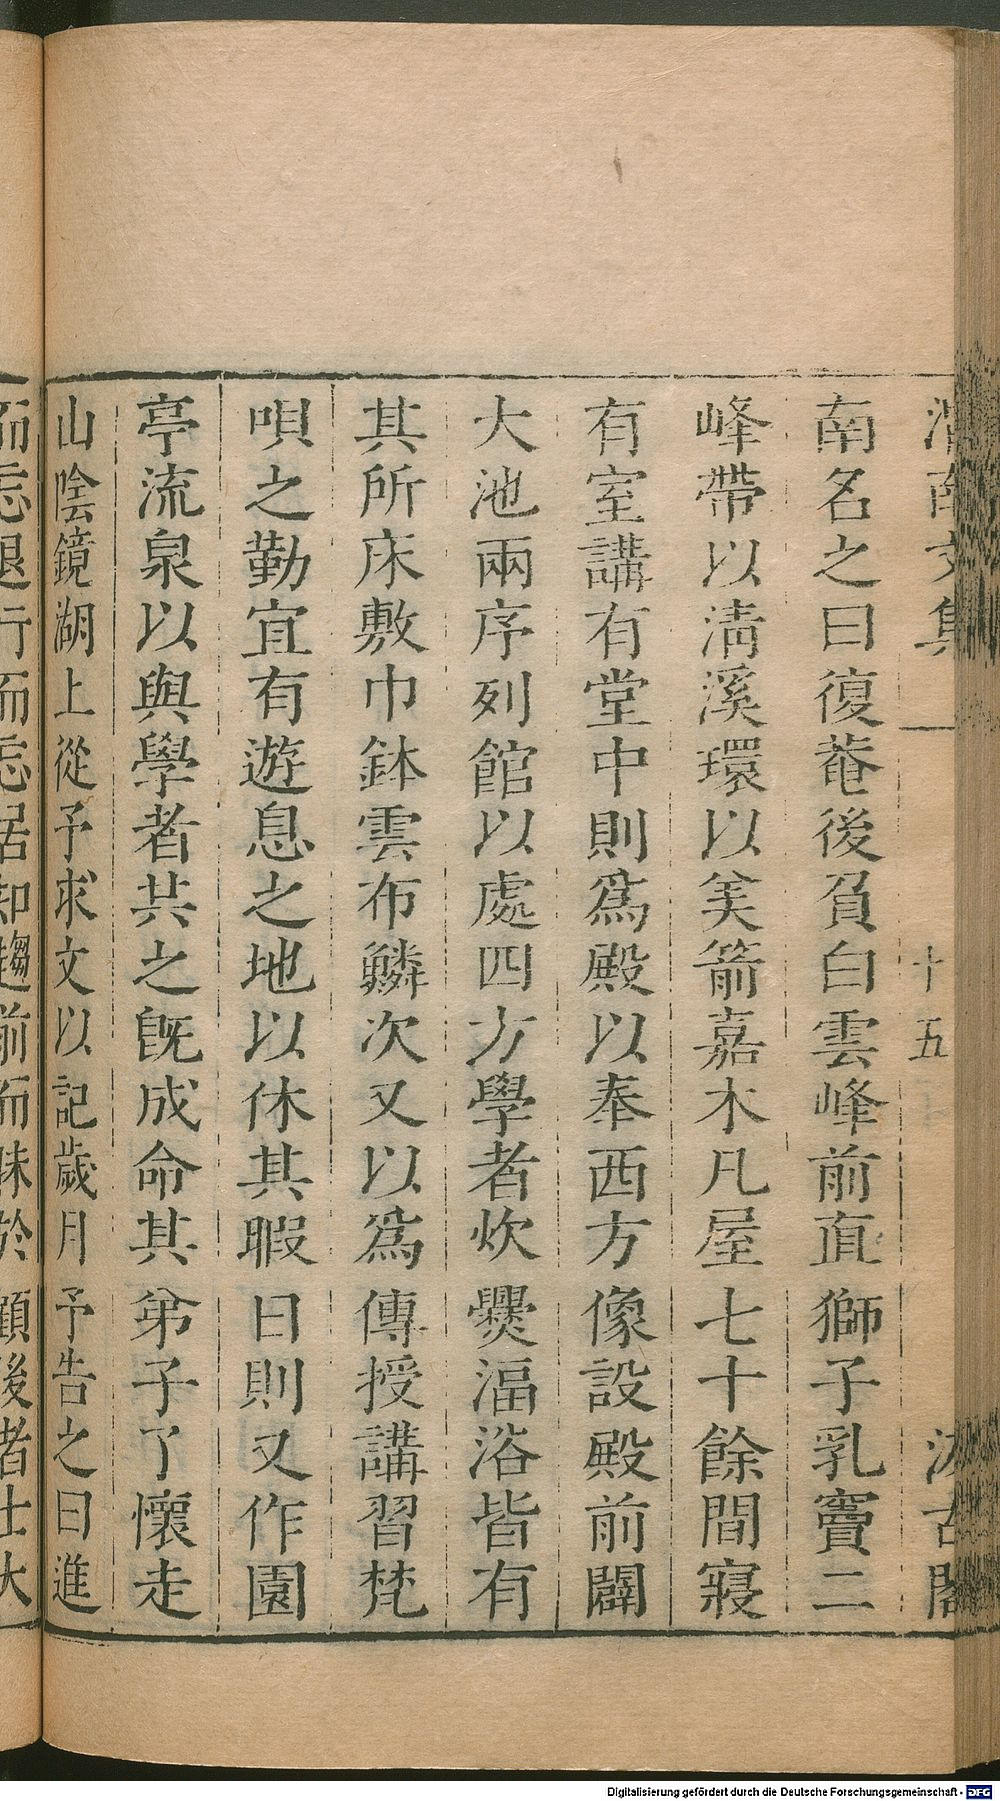 渭南文集
十五
汲古閣
南名之曰復菴後負白雲峰前直獅子乳竇二
峰帶以淸溪環以美箭嘉木凡屋七十餘間寢
有室講有堂中則爲殿以奉西方像設殿前闢
大池兩序列館以處四方學者炊爨湢浴皆有
其所床敷巾鉢雲布鱗次又以爲傳授講習梵
唄之勤宜有遊息之地以休其暇日則又作園
亭流泉以與學者共之旣成命其弟子了懷走
山陰鏡湖上從予求文以記歲月予告之曰進
而忘退行而忘居知趨前而昧於顧後者士大
Digitalisierung gefördert durch die Deutsche Forschungsgemeinschaft - DFG